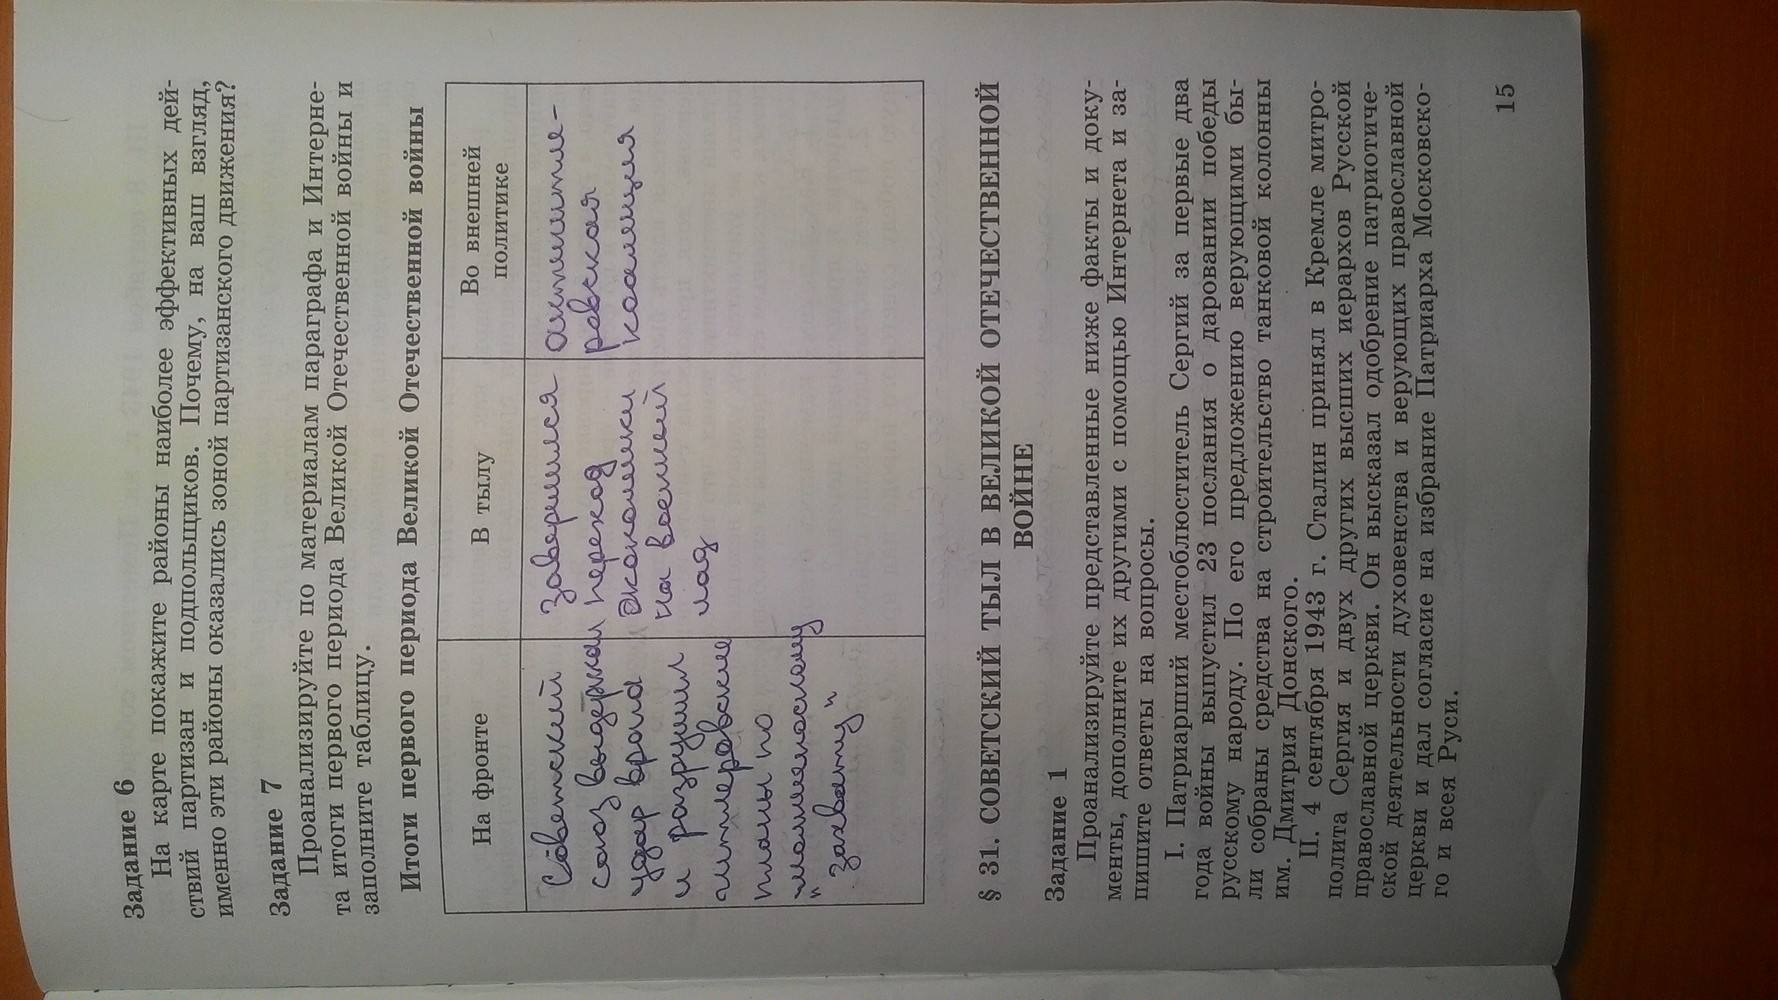 Задание 6
На карте покажите районы наиболее эффективных дей-
ствий партизан и подпольщиков. Почему, на ваш взгляд,
именно эти районы оказались зоной партизанского движения?
Задание 7
Проанализируйте по материалам параграфа и Интерне-
та итоги первого периода Великой Отечественной войны и
заполните таблицу.
Итоги первого периода Великой Отечественной войны
На фронте
В тылу
Во внешней
политике
Советский
союз выдержал
удар врага
и разрушил
гитлеровские
планы по
"молниеносному
захвату"
Завершился
переход
экономики
на военный
лад
антигитле-
ровская
коалиция
§ 31. СОВЕТСКИЙ ТЫЛ В ВЕЛИКОЙ ОТЕЧЕСТВЕННОЙ
ВОЙНЕ
Задание 1
Проанализируйте представленные ниже факты и доку-
менты, дополните их другими с помощью Интернета и за-
пишите ответы на вопросы.
I. Патриарший местоблюститель Сергий за первые два
года войны выпустил 23 послания о даровании победы
русскому народу. По его предложению верующими бы-
ли собраны средства на строительство танковой колонны
им. Дмитрия Донского.
II. 4 сентября 1943 г. Сталин принял в Кремле митро-
полита Сергия и двух других высших иерархов Русской
православной церкви. Он высказал одобрение патриотиче-
ской деятельности духовенства и верующих православной
церкви и дал согласие на избрание Патриарха Московско-
го и всея Руси.
15